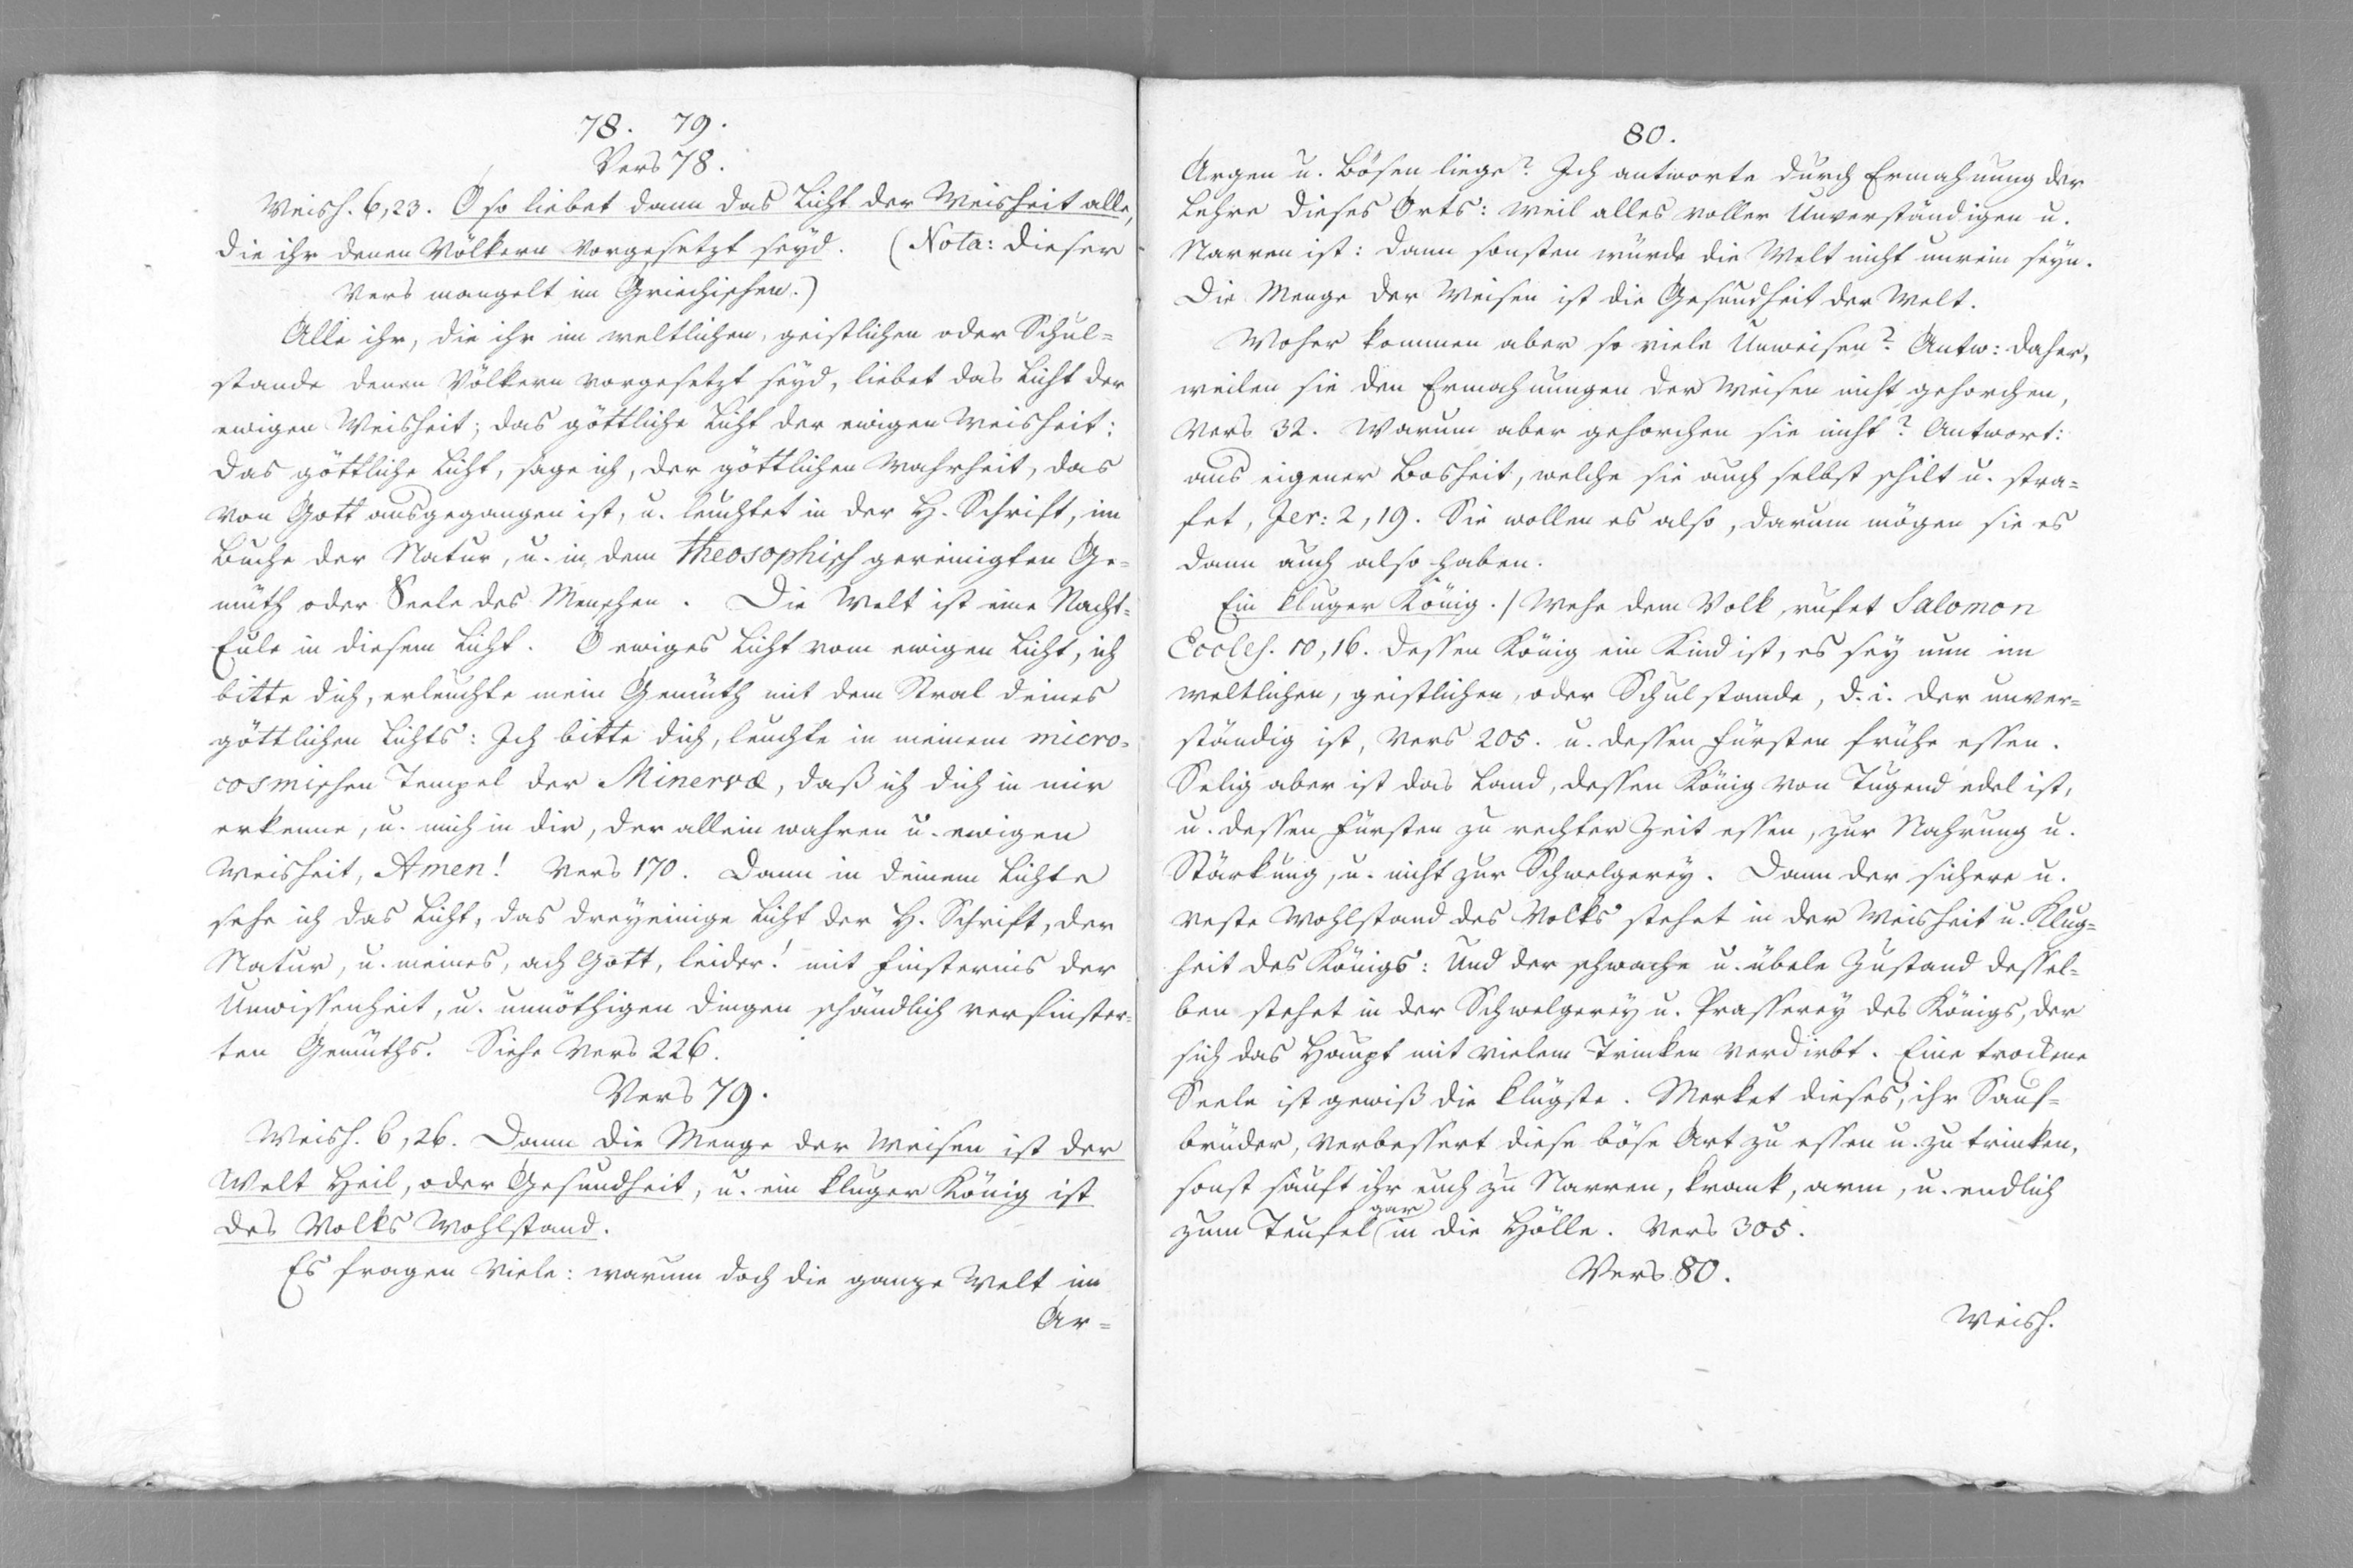 78. 79.
Vers 78.
Weish. 6, 23. O so liebet dann das Licht der Weisheit alle,
die ihr denen Völkern vorgesetzt seyd. (Nota: dieser
Vers mangelt im Griechischen.)
Alle ihr, die ihr im weltlichen, geistlichen oder Schul=
stande denen Völkern vorgesetzt seyd, liebet das Licht der
ewigen Weisheit; das göttliche Licht der ewigen Weisheit:
das göttliche Licht, sage ich, der göttlichen Wahrheit, das
von Gott ausgegangen ist, u. leuchtet in der H. Schrift, im
Buche der Natur, u. in dem theosophisch gereinigten Ge=
müth oder Seele des Menschen. Die Welt ist eine Nacht=
Eule in diesem Licht. O ewiges Licht vom ewigen Licht, ich
bitte dich, erleuchte mein Gemüth mit dem Stral deines
göttlichen Lichts: Ich bitte dich, leuchte in meinem micro=
cosmischen Tempel der Minervæ, daß ich dich in mir
erkenne, u. mich in dir, der allein wahren u. ewigen
Weisheit, Amen! Vers 170. Dann in deinem Lichte
sehe ich das Licht, das dreyeinige Licht der H. Schrift, der
Natur, u. meines, ach Gott, leider! mit Finsternis der
Unwissenheit, u. unnöthigen Dingen schändlich verfinster=
ten Gemüths. Siehe Vers 226.
Vers 79.
Weish. 6, 26. Dann die Menge der Weisen ist der
Welt Heil, oder Gesundheit, u. ein kluger König ist
des Volks Wohlstand.
Es fragen Viele: warum doch die ganze Welt im
Ar=
80.
Argen u. Bösen liege? Ich antworte durch Ermahnung der
Lehre dieses Orts: weil alles voller Unverständigen u.
Narren ist: dann sonsten würde die Welt nicht unrein seyn.
Die Menge der Weisen ist die Gesundheit der Welt.
Woher kommen aber so viele Unweisen? Antw: daher,
weilen sie den Ermahnungen der Weisen nicht gehorchen,
Vers 32. Warum aber gehorchen sie nicht? Antwort:
aus eigener Bosheit, welche sie auch selbst schilt u. stra=
fet, Jer: 2, 19. Sie wollen es also, darum mögen sie es
dann auch also haben.
Ein kluger König. / Wehe dem Volk, rufet Salomon
Eccles. 10, 16. dessen König ein Kind ist, es sey nun im
weltlichen, geistlichen, oder Schulstande, d. i. der unver=
ständig ist, Vers 205. u. dessen Fürsten frühe essen.
Selig aber ist das Land, dessen König von Tugend edel ist,
u. dessen Fürsten zu rechter Zeit essen, zur Nahrung u.
Stärkung, u. nicht zur Schwelgerey. Dann der sichere u.
veste Wohlstand des Volks stehet in der Weisheit u. Klug=
heit des Königs: Und der schwache u. übele Zustand dessel=
ben stehet in der Schwelgerey u. Prasserey des Königs, der
sich das Haupt mit vielem Trinken verdirbt. Eine trockene
Seele ist gewiß die klügste. Merket dieses, ihr Sauf=
brüder, verbessert diese böse Art zu essen u. zu trinken,
sonst sauft ihr euch zu Narren, krank, arm, u. endlich
zum Teufel gar in die Hölle. Vers 305.
Vers 80.
Weish.